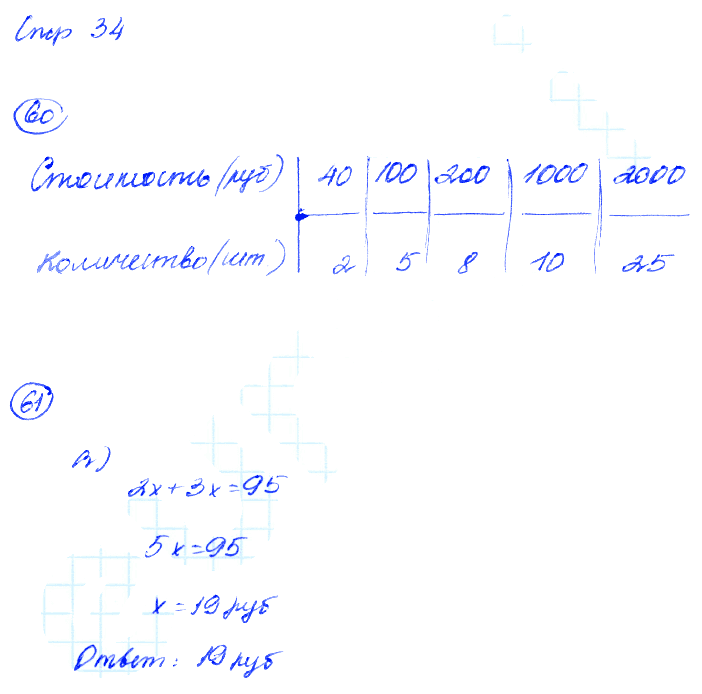 Стр 34
60
Стоимость (руб) 40 100 200 1000 2000
Количество (шт) 2 5 8 10 25
61
а)
2x + 3x = 95
5x = 95
x = 19 руб
Ответ: 19 руб